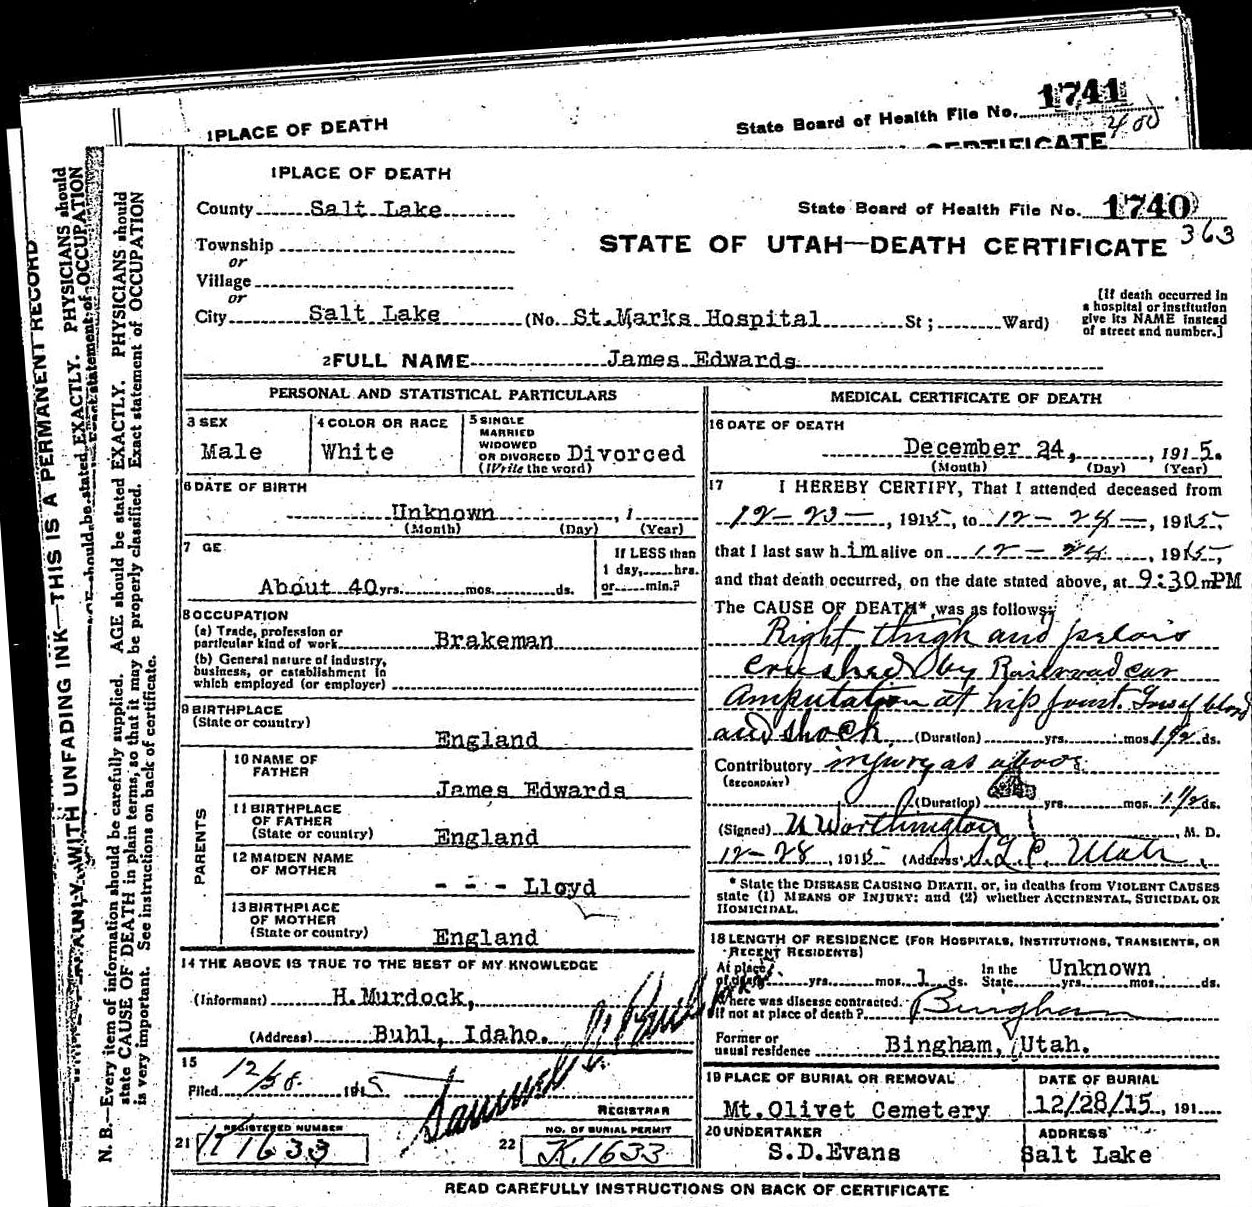 1 PLACE OF DEATH
State Board of Health File No. 1741
400
CERTIFICATE
1 PLACE OF DEATH
County Salt Lake
State Board of Health File No. 1740
363
Township
STATE OF UTAH—DEATH CERTIFICATE
or
Village
or
City Salt Lake (No. St.Marks Hospital St ; Ward)
[If death occurred in
a hospital or institution
give its NAME instead
of street and number.]
2 FULL NAME James Edwards
PERSONAL AND STATISTICAL PARTICULARS
3 SEX
Male
4 COLOR OR RACE
White
5 SINGLE
MARRIED
WIDOWED
OR DIVORCED Divorced
(Write the word)
6 DATE OF BIRTH
Unknown , 1
(Month) (Day) (Year)
7 GE
About 40 yrs. mos. ds.
If LESS than
1 day, hrs.
or min.?
8 OCCUPATION
(a) Trade, profession or
particular kind of work Brakeman
(b) General nature of industry,
business, or establishment in
which employed (or employer)
9 BIRTHPLACE
(State or country)
England
PARENTS
10 NAME OF
FATHER
James Edwards
11 BIRTHPLACE
OF FATHER
(State or country)
England
12 MAIDEN NAME
OF MOTHER
- - - Lloyd
13 BIRTHPLACE
OF MOTHER
(State or country)
England
14 THE ABOVE IS TRUE TO THE BEST OF MY KNOWLEDGE
(Informant) H.Murdock,
(Address) Buhl, Idaho.
15
Filed 12/30. 1915
REGISTRAR
REGISTERED NUMBER
21 K1633
NO. OF BURIAL PERMIT
22 K.1633
MEDICAL CERTIFICATE OF DEATH
16 DATE OF DEATH
December 24, , 1915.
(Month) (Day) (Year)
17 I HEREBY CERTIFY, That I attended deceased from
12-23- , 1915, to 12-24- , 1915,
that I last saw h.im alive on 12-24 , 1915,
and that death occurred, on the date stated above, at 9:30 m PM
The CAUSE OF DEATH* was as follows:
Right thigh and pelvis
crushed by Railroad car
Amputation at hip joint. Loss of blood
and shock. (Duration) yrs. mos 1 1/2 ds.
Contributory injury as above
(SECONDARY)
(Duration) yrs. mos. 1 1/2 ds.
(Signed) Worthington , M. D.
12-28 , 1915 (Address) S.L.C. Utah.
* State the DISEASE CAUSING DEATH, or, in deaths from VIOLENT CAUSES
state (1) MEANS OF INJURY; and (2) whether ACCIDENTAL, SUICIDAL OR
HOMICIDAL.
18 LENGTH OF RESIDENCE (FOR HOSPITALS, INSTITUTIONS, TRANSIENTS, OR
RECENT RESIDENTS)
At place
of death yrs. mos. 1 ds. In the State Unknown yrs. mos. ds.
Where was disease contracted.
If not at place of death? Bingham
Former or
usual residence Bingham, Utah.
19 PLACE OF BURIAL OR REMOVAL
Mt.Olivet Cemetery
DATE OF BURIAL
12/28/15 , 191
20 UNDERTAKER
S.D.Evans
ADDRESS
Salt Lake
READ CAREFULLY INSTRUCTIONS ON BACK OF CERTIFICATE
WITH UNFADING INK—THIS IS A PERMANENT RECORD
should be stated EXACTLY. PHYSICIANS should
Exact statement of OCCUPATION
N. B.—Every item of information should be carefully supplied. AGE should be stated EXACTLY. PHYSICIANS should
state CAUSE OF DEATH in plain terms, so that it may be properly classified. Exact statement of OCCUPATION
is very important. See instructions on back of certificate.